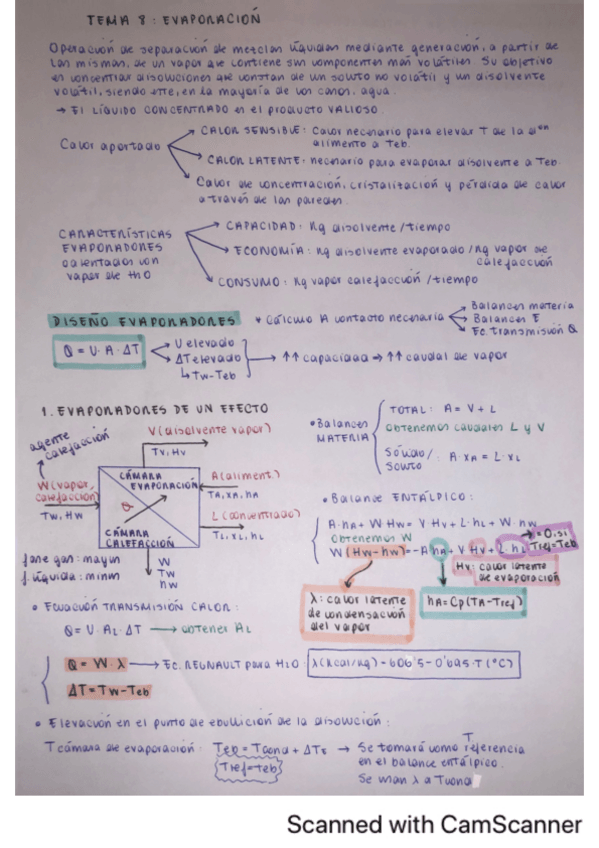 TEMA 8: EVAPORACIÓN
Operación de separación de mezclas líquidas mediante generación, a partir de
las mismas, de un vapor que contiene sus componentes más volátiles. Su objetivo
es concentrar disoluciones que constan de un soluto no volátil y un disolvente
volátil, siendo este, en la mayoría de los casos, agua.
→ El LÍQUIDO CONCENTRADO es el producto VALIOSO.
Calor aportado
CALOR SENSIBLE: Calor necesario para elevar T de la
alimento a Teb.
CALOR LATENTE: necesario para evaporar disolvente a Teb.
Calor de concentración, cristalización y pérdida de calor
a través de las paredes.
CARACTERÍSTICAS
EVAPORADORES
calentados con
vapor de H2O
CAPACIDAD: Kg disolvente/tiempo
ECONOMÍA: Kg disolvente evaporado/Kg vapor de
calefacción
CONSUMO: Kg vapor calefacción/tiempo
DISEÑO EVAPORADORES
Cálculo A contacto necesaria
Balances materia
Balances E
Ec. transmisión Q
Q = U · A · ΔT
U elevado
ΔT elevado
↳ Tw-Teb
→ ↑↑ capacidad → ↑↑ caudal de vapor
1. EVAPORADORES DE UN EFECTO
agente
calefacción
V (disolvente vapor)
Tv, Hv
W (vapor
calefacción)
Tw, Hw
CÁMARA
EVAPORACIÓN
Q
CÁMARA
CALEFACCIÓN
A (aliment.)
TA, xA, hA
L (concentrado)
TL, xL, hL
fase gas: mayus
f. líquida: minus
W
Tw
hw
• Balances
MATERIA
TOTAL: A = V + L
Obtenemos caudales L y V
Sólido/
soluto
A · xA = L · xL
• Balance ENTÁLPICO:
A · hA + W · Hw = V · Hv + L · hL + W · hw
Obtenemos W
= 0, si
Tref = Teb
W (Hw - hw) = -A · hA + V · Hv + L · hL
Hv: calor latente
de evaporación
λ: calor latente
de condensación
del vapor
hA = Cp (TA - Tref)
• Ecuación TRANSMISIÓN CALOR:
Q = U · AL · ΔT → obtener AL
Q = W · λ → Ec. REGNAULT para H2O: λ (Kcal/Kg) = 606'5 - 0'695 · T (°C)
ΔT = Tw - Teb
• Elevación en el punto de ebullición de la disolución:
T cámara de evaporación: Teb = Tcond + ΔTε → Se tomará como T referencia
en el balance entálpico.
Tref = Teb
Se usan λ a Tcond
Scanned with CamScanner